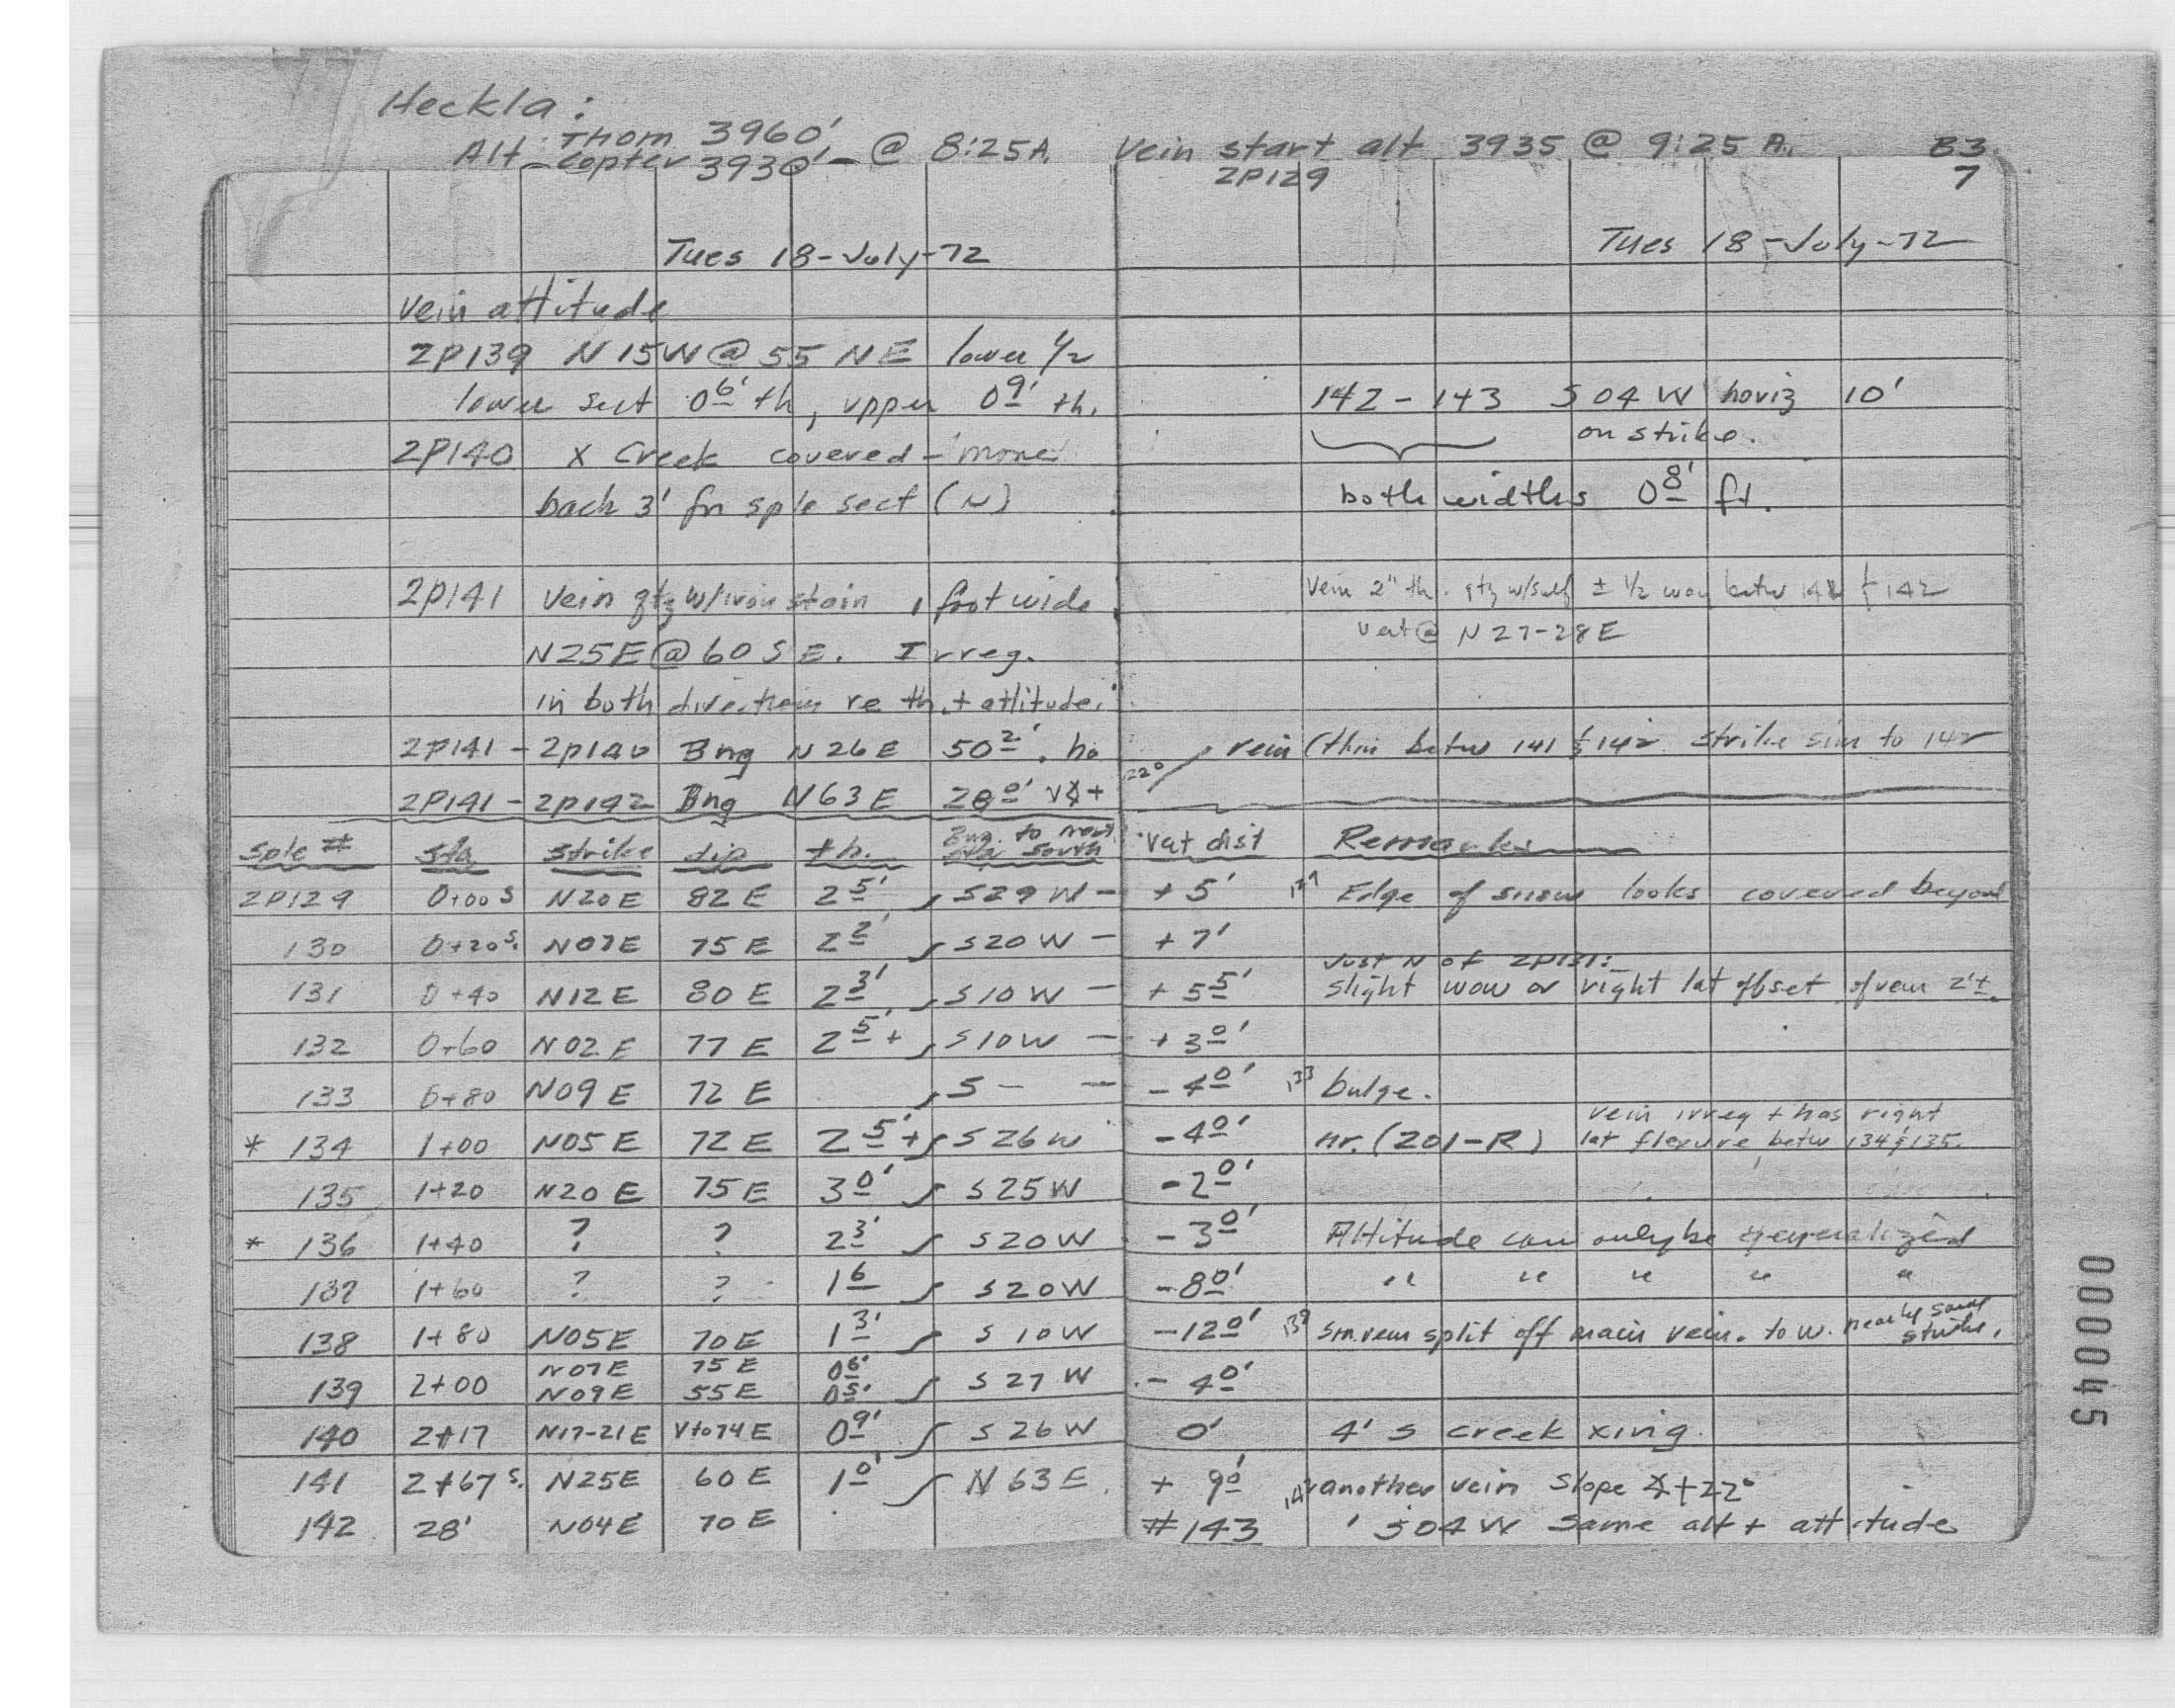 Heckla:
Alt. Thom 3960'
Alt - Copter 3930' - @ 8:25A.
Vein start alt 3935 @ 9:25 A.
2P129
83
7
Tues 18-July-72
vein attitude
2P139 N15W@55 NE lower 1/2
lower sect 0 6' th, upper 0 9' th.
2P140 x Creek covered - move
back 3' for sple sect (N)
2P141 vein qtz w/iron stain, 1 foot wide
N25E@60SE. Irreg.
in both directions re th. + attitude.
2P141 - 2P140 Bng N26E 50 2'. ho
2P141 - 2P142 Bng N63E 28 0' V∡+
Tues 18-July-72
142 - 143 S04W horiz 10'
on strike.
both widths 0 8' ft.
Vein 2" th. qtz w/sulf ± 1/2 way betw & 142
@ N27-28E
22° vein (thin betw 141 & 142. strike sim to 142
Sple # sta strike dip th. Bng. to next sta South Vat dist Remarks
2P129 0+00S N20E 82E 2 5' S29W - +5' 129 Edge of snow looks covered beyond
130 0+20S. N07E 75E 2 2' S20W - +7'
Just N of 2P131:
131 0+40 N12E 80E 2 3' S10W - +5 5' slight wow or right lat offset of vein 2'±.
132 0+60 N02E 77E 2 5'+ S10W - +3 0'
133 0+80 N09E 72E S - - -4 0' 133 bulge.
* 134 1+00 N05E 72E 2 5'+ S26W -4 0' nr. (201-R) vein irreg + has right
lat flexure betw 134 & 135.
135 1+20 N20E 75E 3 0' S25W -2 0'
* 136 1+40 ? ? 2 3' S20W -3 0' Attitude can only be generalized
137 1+60 ? ? 1 6 S20W -8 0' " " " " "
138 1+80 N05E 70E 1 3' S10W -12 0' 139 sm. vein split off main vein. to w. nearly same strike.
139 2+00 N07E 75E 0 6' S27W -4 0'
N09E 55E 0 5'
140 2+17 N17-21E V to 74E 0 9' S26W 0' 4' S creek xing.
141 2+67S. N25E 60E 1 0' N63E. +9 0' 142 another vein slope ∡+22°
142 28' N04E 70E #143 ' S04W same alt + attitude
000045